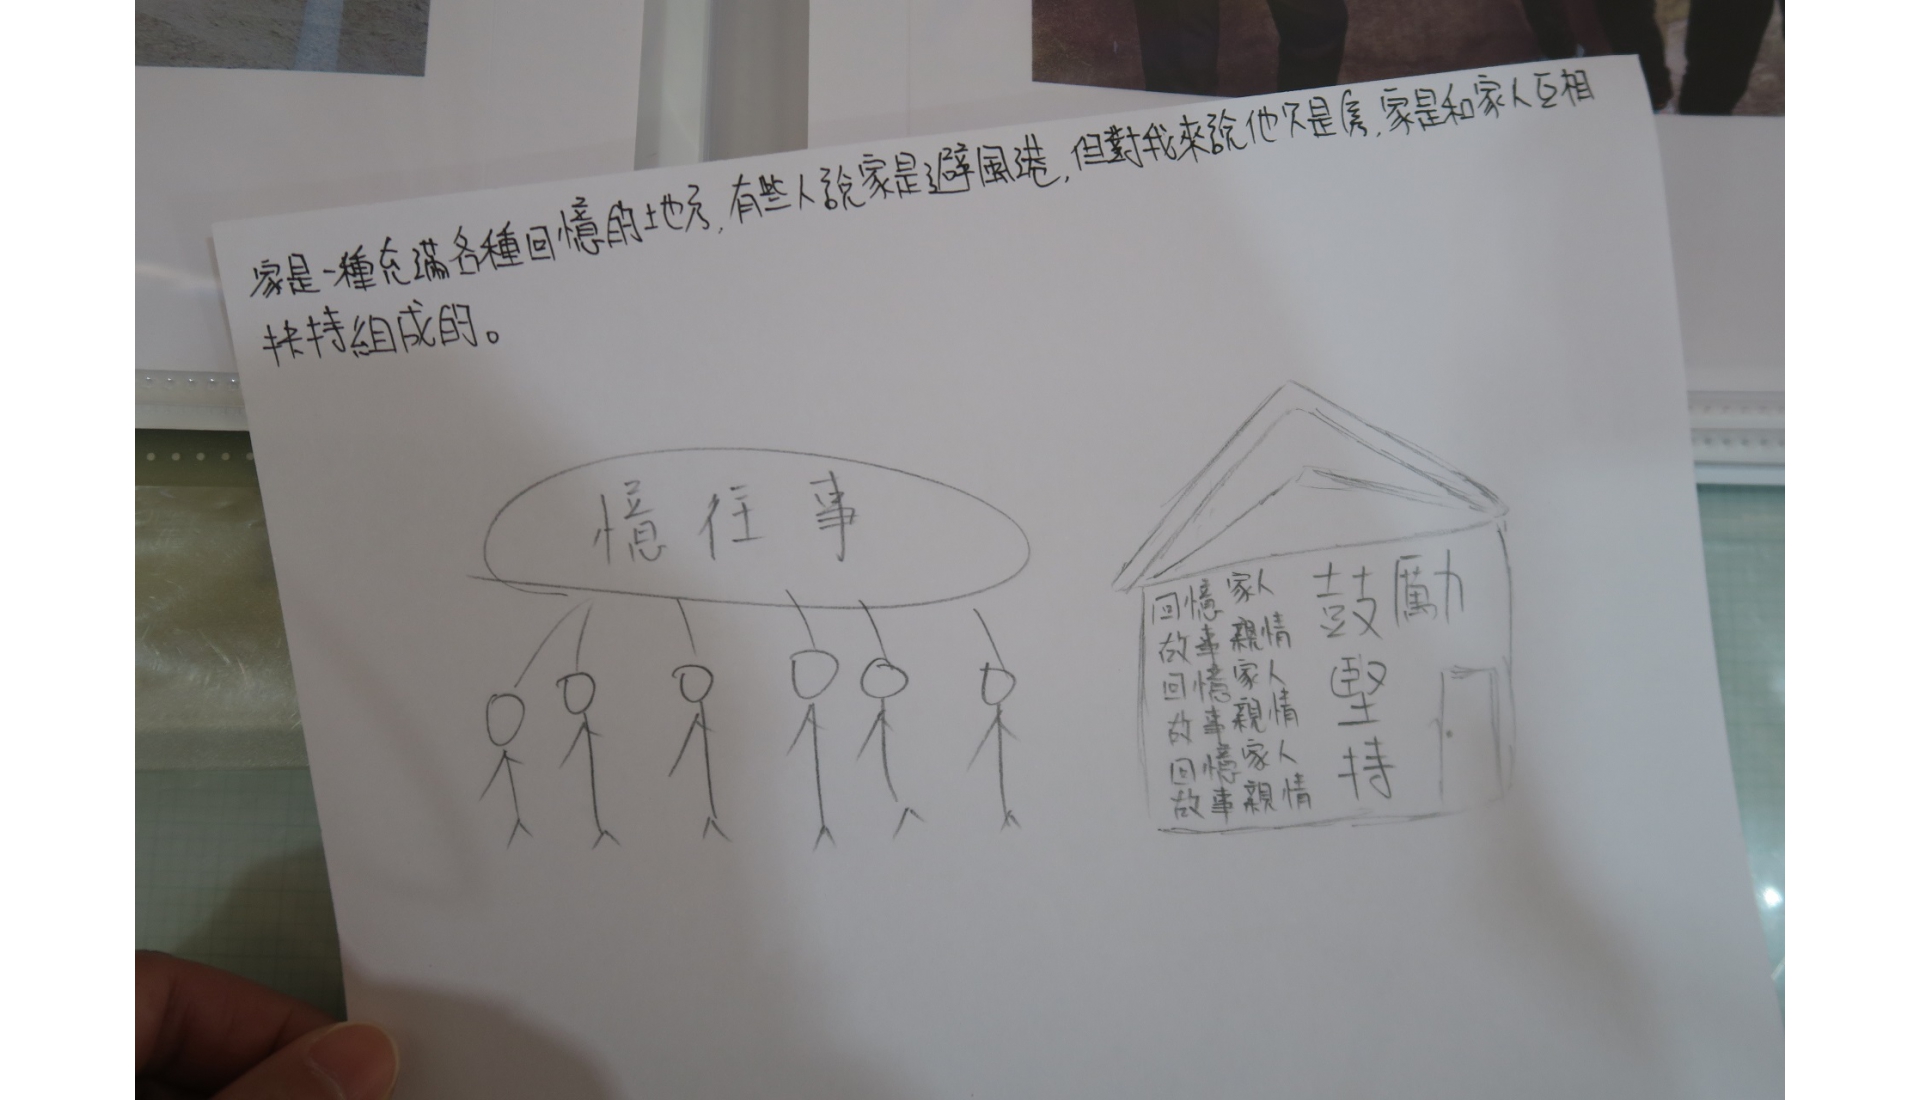 家是一種充滿各種回憶的地方,有些人說家是避風港,但對我來說他只是房,家是和家人互相
扶持組成的。
憶往事
回憶家人
故事親情
回憶家人
故事親情
回憶家人
故事親情
鼓勵
堅
持